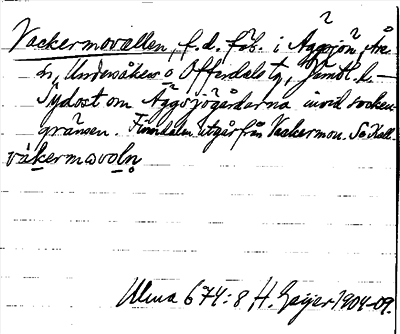 Vackermovallen, f. d. fäb. i Äggsjön, Åre
s, Undersåkers o Offerdals tg, Jämtl. l. —
Sydost om Äggsjögårdarna invid socken-
gränsen. Finndalen utgår från Vackermon. Sö Kall.
våkermovoln
Ulma 674:8 H. Geijer 1904-09.